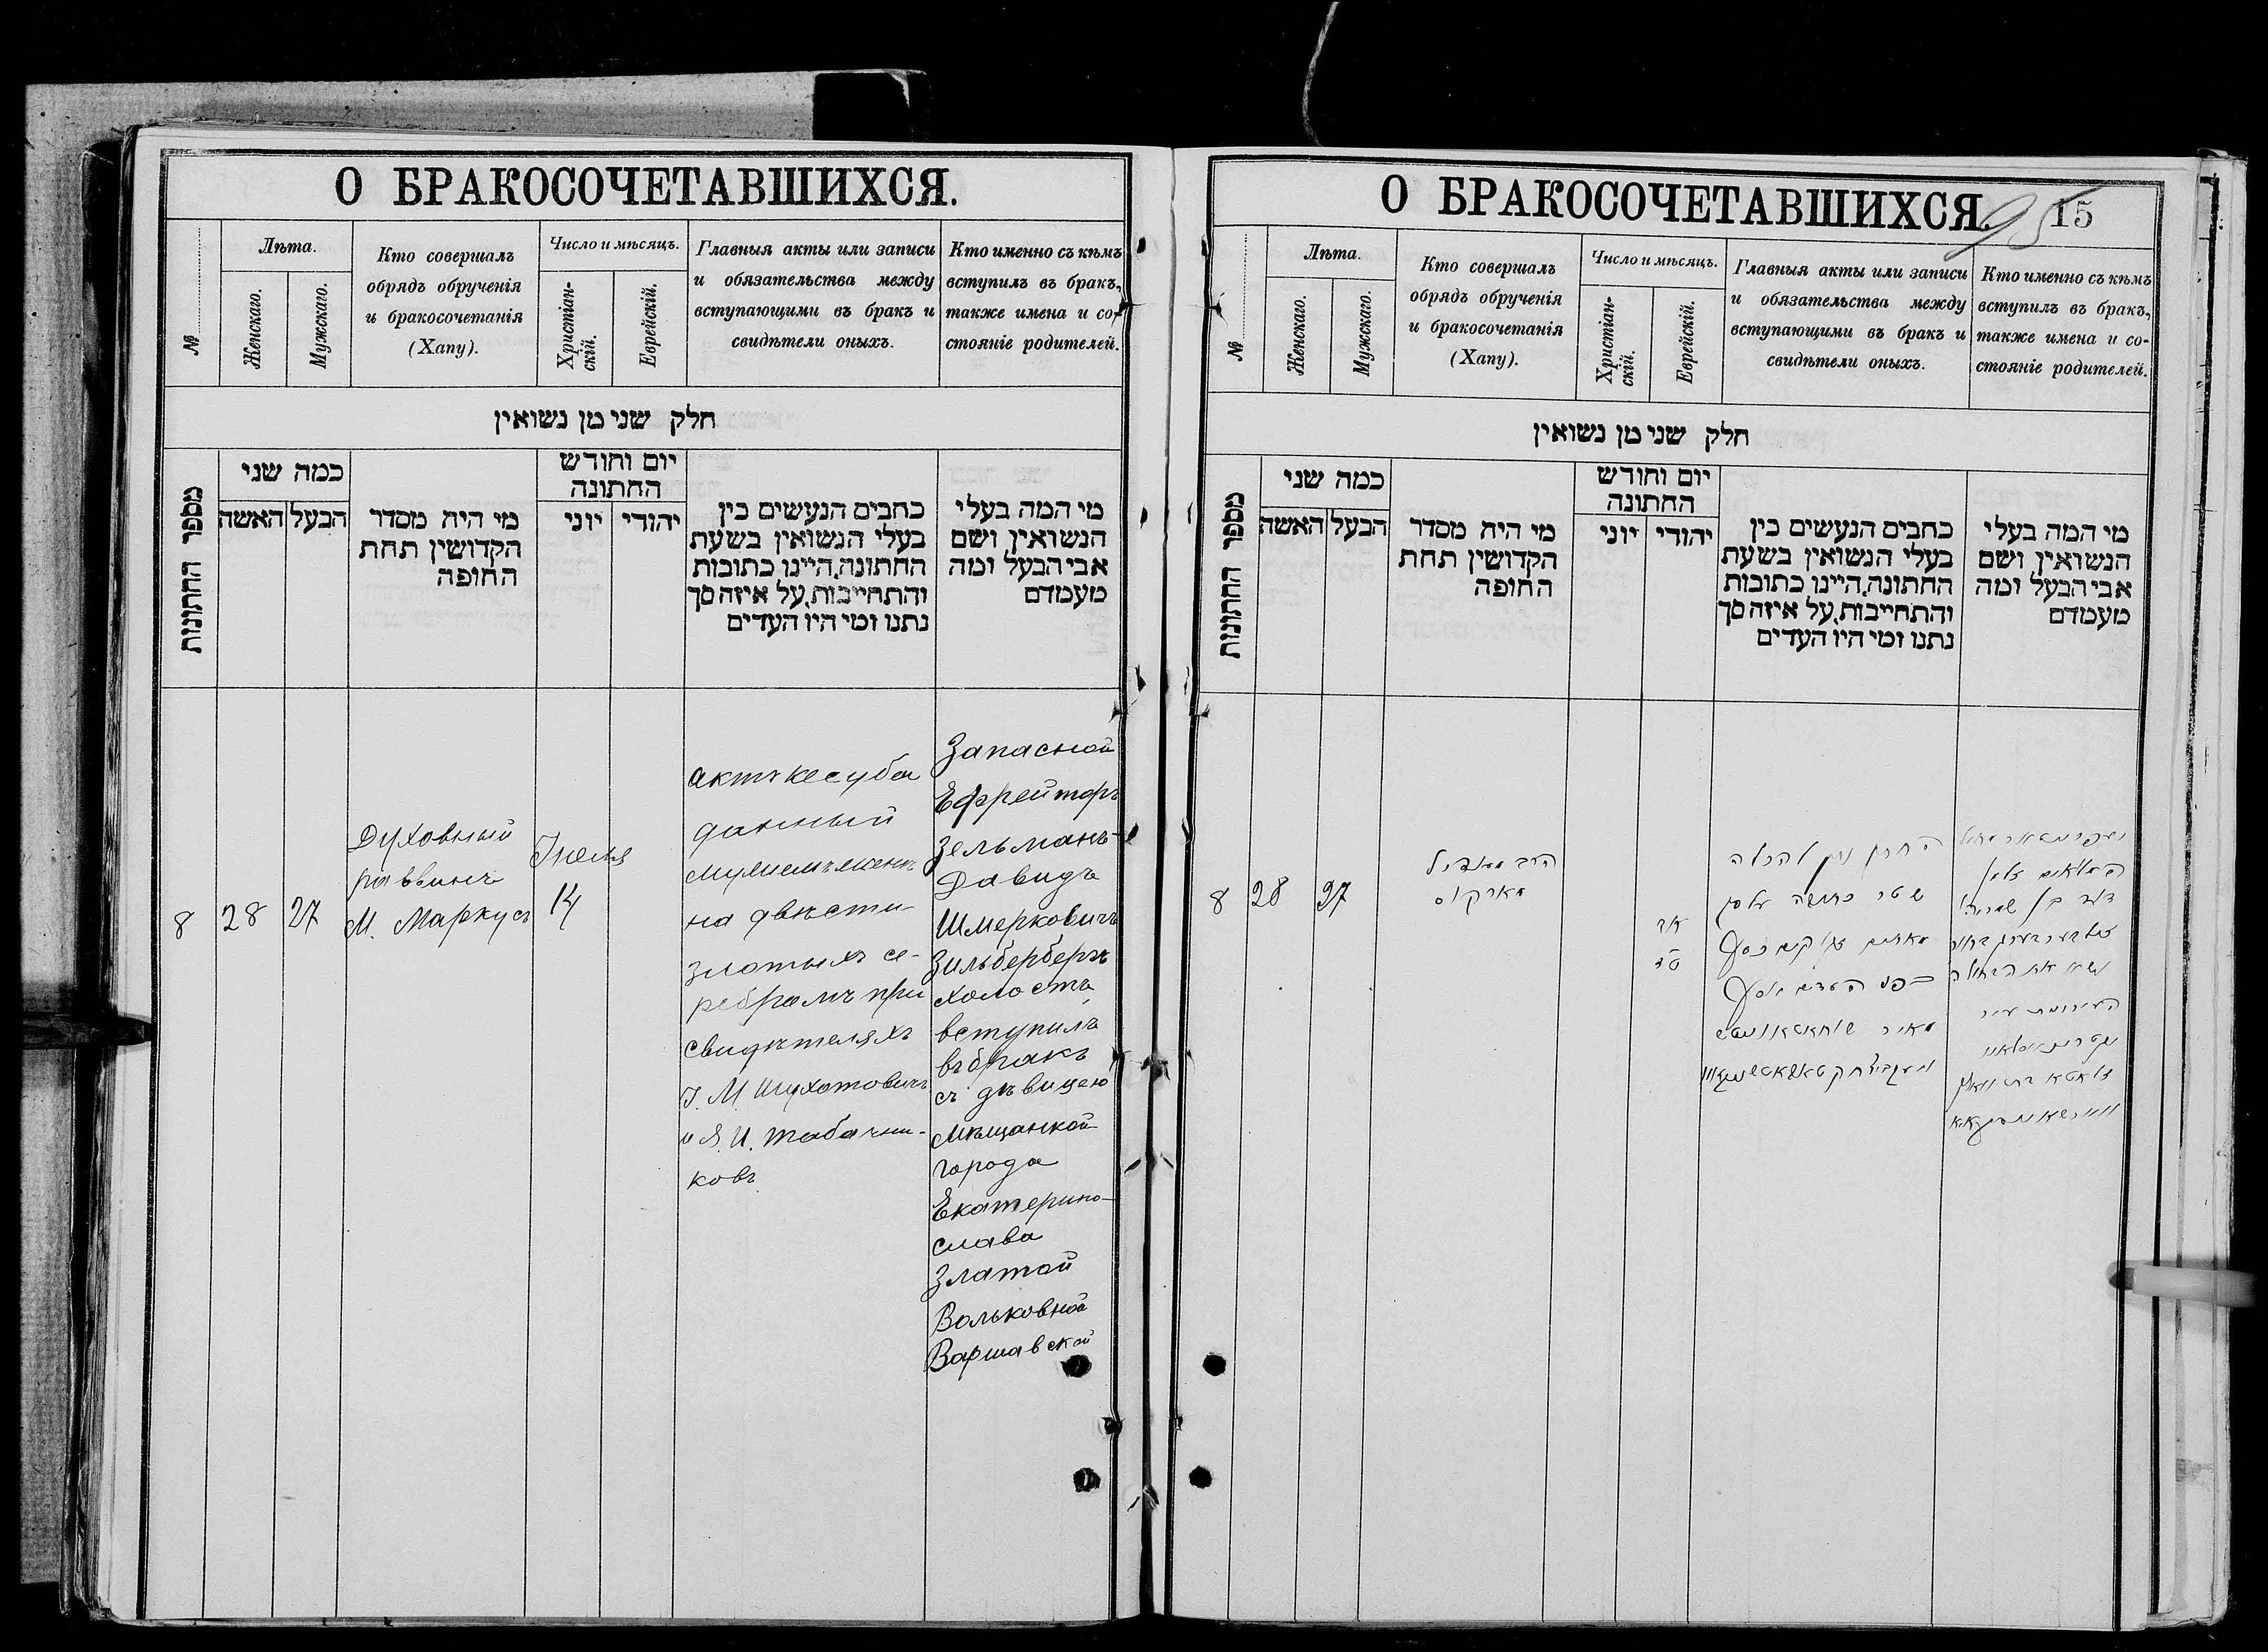 О БРАКОСОЧЕТАВШИХСЯ.
№
Лѣта.
Женскаго.
Мужскаго.
Кто совершалъ
обрядъ обрученія
и бракосочетанія
(Хапу).
Число и мѣсяцъ.
Христіан-
скій.
Еврейскій.
Главныя акты или записи
и обязательства между
вступающими въ бракъ и
свидѣтели оныхъ.
Кто именно съ кѣмъ
вступилъ въ бракъ,
также имена и со-
стояніе родителей.
חלק שני מן נשואין
מספר החתונות
כמה שני
האשה
הבעל
מי היה מסדר
הקדושין תחת
החופה
יום וחודש
החתונה
יוני
יהודי
כתבים הנעשים בין
בעלי הנשואין בשעת
החתונה, היינו כתובות
והתחייבות, על איזה סך
נתנו ומי היו העדים
מי המה בעלי
הנשואין ושם
אבי הבעל ומה
מעמדם
8
28
27
Духовный
раввинъ
М. Маркусъ
Іюня
14
актъ кесуба
данный
мужемъ женѣ
на двѣсти
злотыхъ се-
ребромъ при
свидѣтеляхъ
І. М. Шухатовичъ
и Я. И. Табачни-
ковъ
Запасной
Ефрейторъ
Зельманъ-
Давидъ
Шмерковичъ
Зильбербергъ
холостъ
вступилъ
въ бракъ
съ дѣвицею
Мѣщанкой
города
Екатерино-
слава
Златой
Вольковной
Варшавской
О БРАКОСОЧЕТАВШИХСЯ.
95
15
№
Лѣта.
Женскаго.
Мужскаго.
Кто совершалъ
обрядъ обрученія
и бракосочетанія
(Хапу).
Число и мѣсяцъ.
Христіан-
скій.
Еврейскій.
Главныя акты или записи
и обязательства между
вступающими въ бракъ и
свидѣтели оныхъ.
Кто именно съ кѣмъ
вступилъ въ бракъ,
также имена и со-
стояніе родителей.
חלק שני מן נשואין
מספר החתונות
כמה שני
האשה
הבעל
מי היה מסדר
הקדושין תחת
החופה
יום וחודש
החתונה
יוני
יהודי
כתבים הנעשים בין
בעלי הנשואין בשעת
החתונה, היינו כתובות
והתחייבות, על איזה סך
נתנו ומי היו העדים
מי המה בעלי
הנשואין ושם
אבי הבעל ומה
מעמדם
8
28
27
הרב
מארקוס
החתן נתן להכלה
שטר כתובה על סך
מאתים זקוקים כסף
בפני העדים יוסף
מאיר
זלמן
דוד בן שמריה
זילבערבערג בחור
נשא את הבתולה
זלאטא בת וואלף